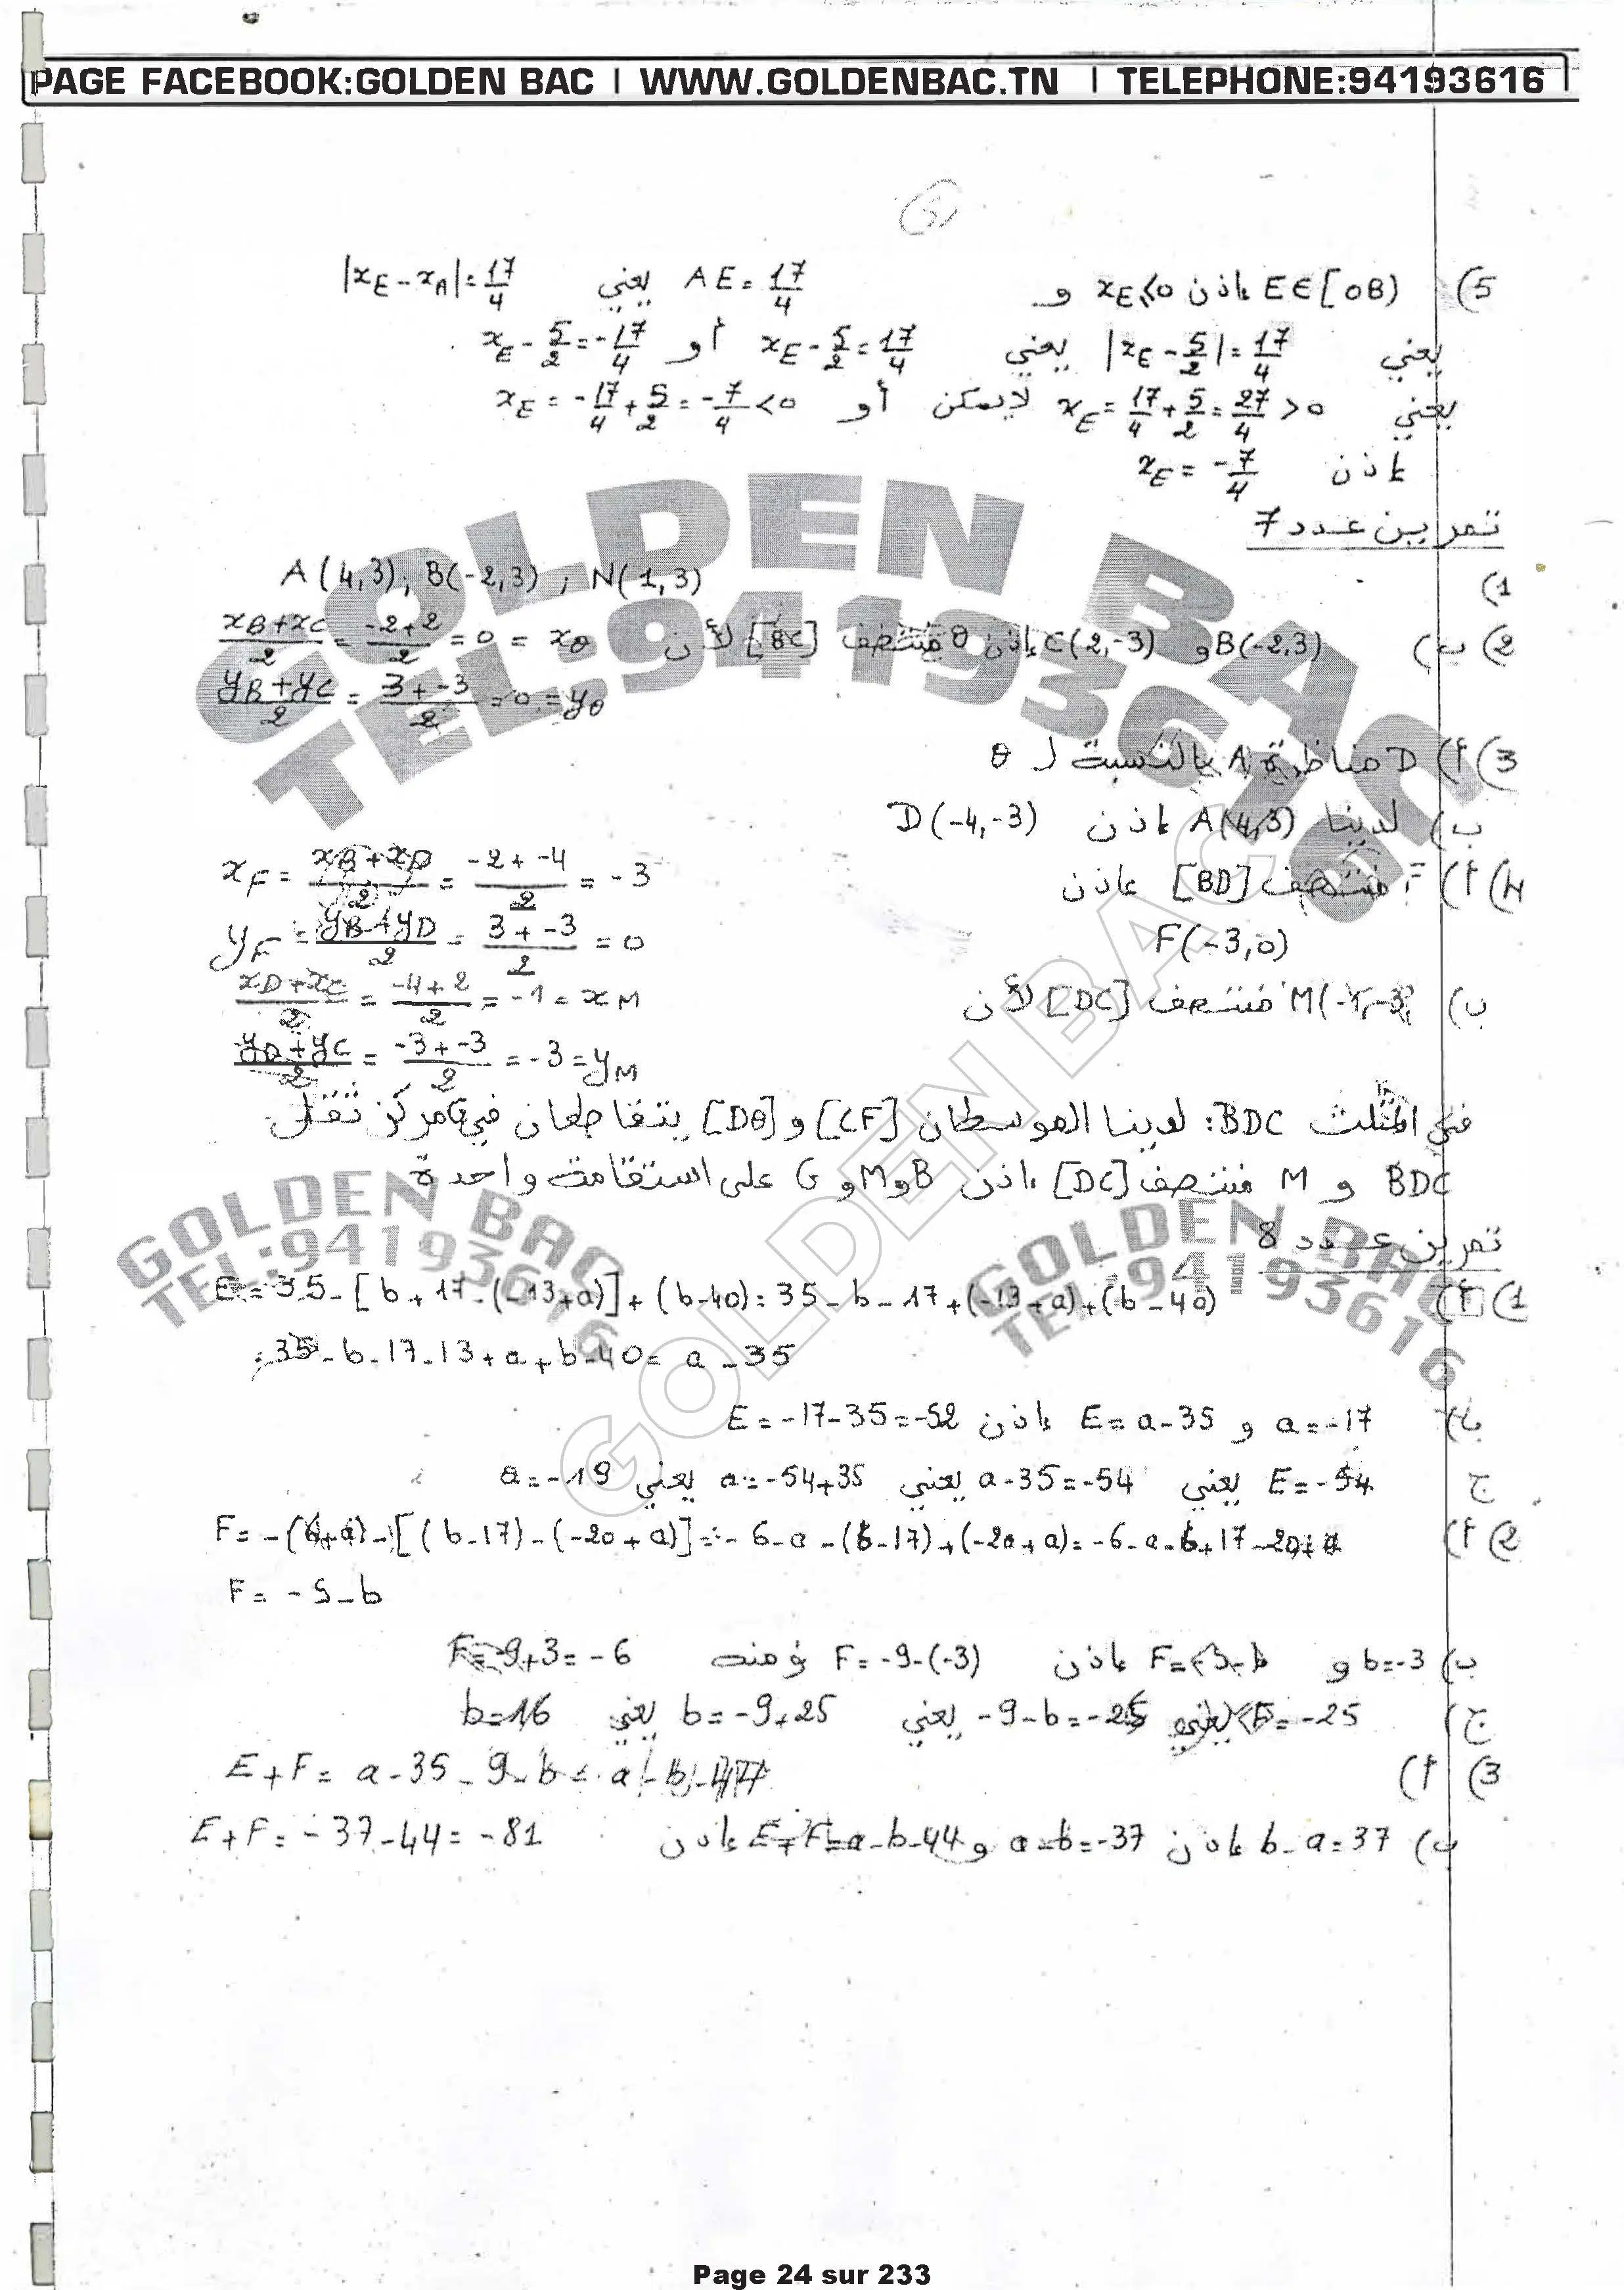 PAGE FACEBOOK:GOLDEN BAC | WWW.GOLDENBAC.TN | TELEPHONE:94193616
5) E∈[OB) اذن x_E≤0 و AE = 17/4 يعني |x_E - x_A| = 17/4
يعني |x_E - 5/2| = 17/4 يعني x_E - 5/2 = 17/4 أو x_E - 5/2 = -17/4
يعني x_E = 17/4 + 5/2 = 27/4 > 0 لا يمكن أو x_E = -17/4 + 5/2 = -7/4 < 0
اذن x_E = -7/4
تمرين عدد 7
1) A(4,3), B(-2,3) ; N(1,3)
2) ب) B(-2,3) و C(2,-3) اذن θ منتصف [BC] لأن (x_B+x_C)/2 = (-2+2)/2 = 0 = x_θ
(y_B+y_C)/2 = (3+-3)/2 = 0 = y_θ
3) أ) D مناظرة A بالنسبة لـ θ
ب) لدينا A(4,3) اذن D(-4,-3)
4) أ) F منتصف [BD] اذن x_F = (x_B+x_D)/2 = (-2+-4)/2 = -3
F(-3,0) y_F = (y_B+y_D)/2 = (3+-3)/2 = 0
ب) M(-1,-3) منتصف [DC] لأن (x_D+x_C)/2 = (-4+2)/2 = -1 = x_M
(y_D+y_C)/2 = (-3+-3)/2 = -3 = y_M
في المثلث BDC: لدينا الموسطان [CF] و [Dθ] يتقاطعان في G مركز ثقل
BDC و M منتصف [DC] اذن B و M و G على استقامة واحدة
تمرين عدد 8
1) أ) E = 35-[b+17-(-13+a)]+(b-40) = 35-b-17+(-13+a)+(b-40)
= 35-b-17-13+a+b-40 = a-35
ب) a=-17 و E=a-35 اذن E=-17-35=-52
ج E=-54 يعني a-35=-54 يعني a=-54+35 يعني a=-19
2) أ) F=-(6+a)-[(b-17)-(-20+a)]=-6-a-(b-17)+(-20+a)=-6-a-b+17-20+a
F = -9-b
ب) b=-3 و F=-9-b اذن F=-9-(-3) ومنه F=-9+3=-6
ج) F=-25 يعني -9-b=-25 يعني b=-9+25 يعني b=16
3) أ) E+F = a-35-9-b = a-b-44
ب) b-a=37 اذن a-b=-37 و E+F=a-b-44 اذن E+F=-37-44=-81
GOLDEN BAC
TEL:94193616
GOLDEN BAC
GOLDEN BAC
TEL:94193616
GOLDEN BAC
TEL:94193616
Page 24 sur 233